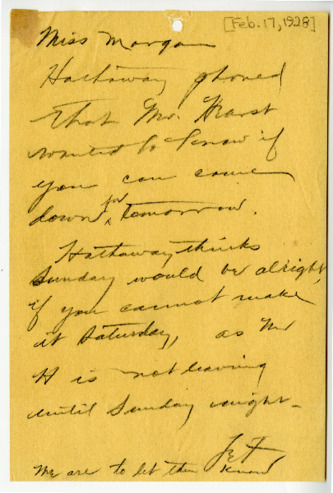 [Feb. 17, 1928]
Miss Morgan
Hathaway phoned
that Mr. Hearst
wanted to know if
you can come
down for tomorrow.
Hathaway thinks
Sunday would be alright,
if you cannot make
it Saturday, as Mr
H is not leaving
until Sunday night -
JEF
We are to let them know